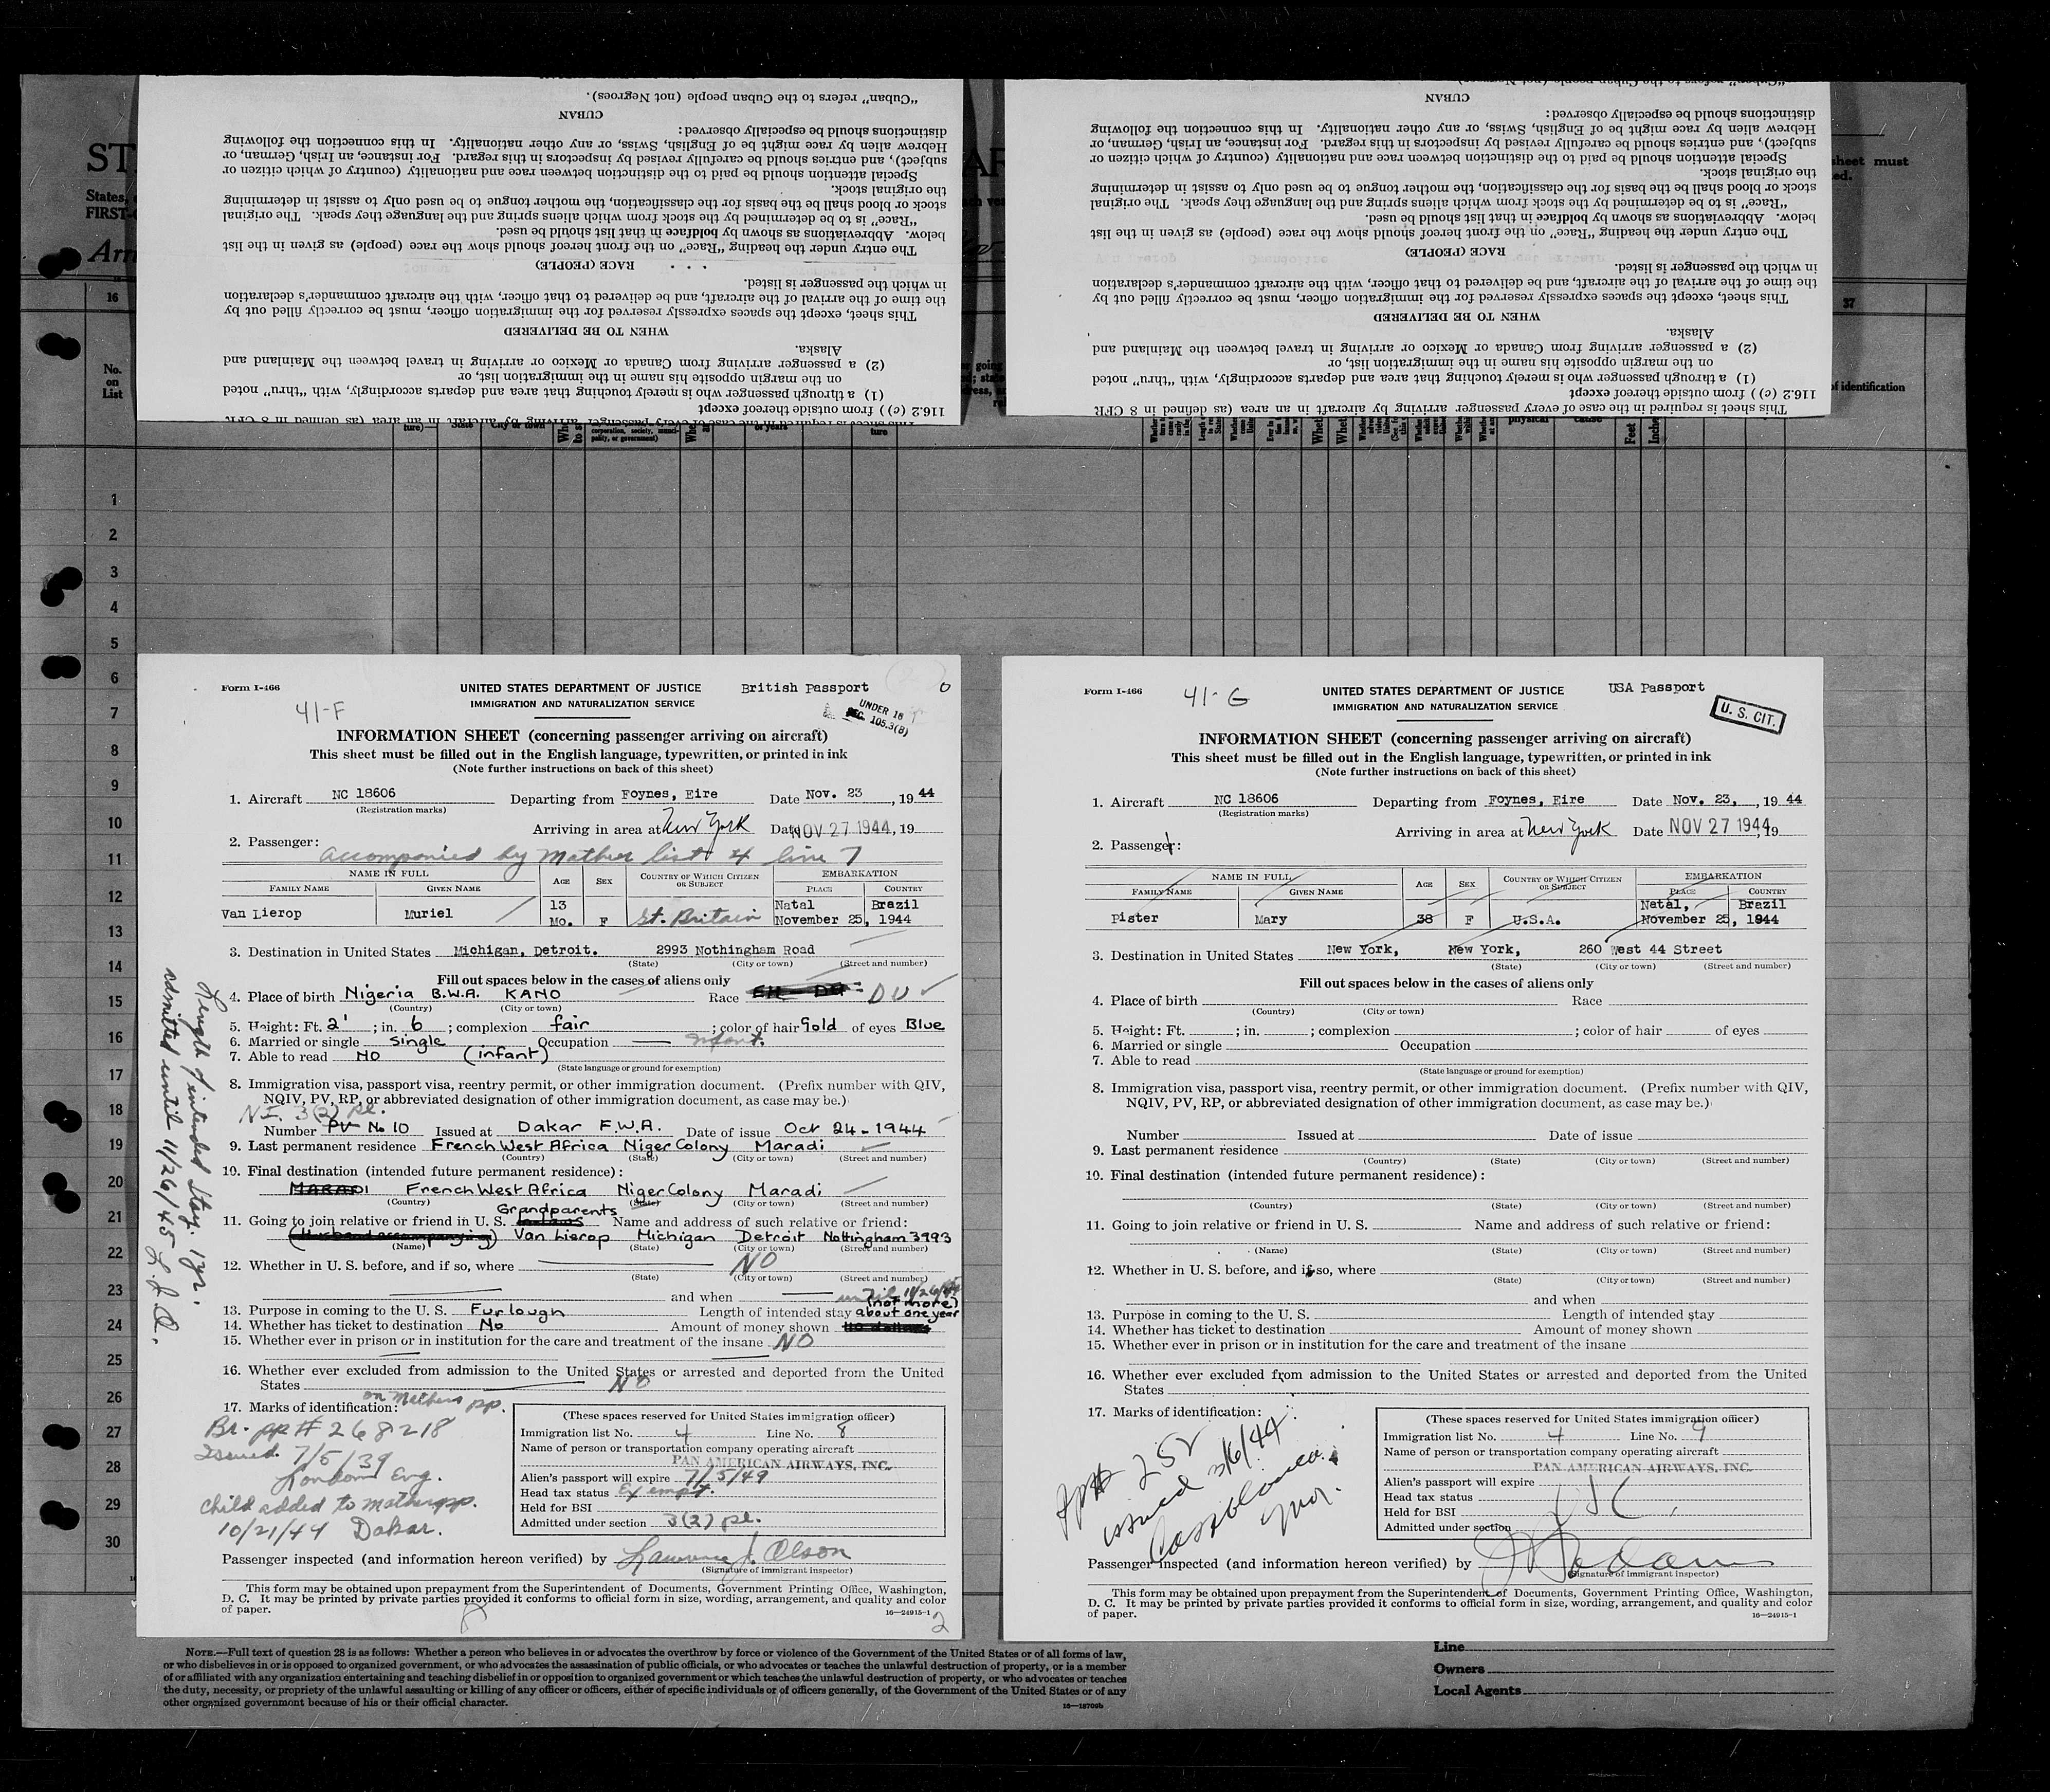 "Cuban" refers to the Cuban people (not Negroes).
CUBAN
distinctions should be especially observed:
Hebrew alien by race might be of English, Swiss, or any other nationality. In this connection the following
subject), and entries should be carefully revised by inspectors in this regard. For instance, an Irish, German, or
Special attention should be paid to the distinction between race and nationality (country of which citizen or
the original stock.
stock or blood shall be the basis for the classification, the mother tongue to be used only to assist in determining
"Race" is to be determined by the stock from which aliens spring and the language they speak. The original
below. Abbreviations as shown by boldface in that list should be used.
The entry under the heading "Race" on the front hereof should show the race (people) as given in the list
RACE (PEOPLE)
in which the passenger is listed.
the time of the arrival of the aircraft, and be delivered to that officer, with the aircraft commander's declaration
This sheet, except the spaces expressly reserved for the immigration officer, must be correctly filled out by
WHEN TO BE DELIVERED
Alaska.
(2) a passenger arriving from Canada or Mexico or arriving in travel between the Mainland and
on the margin opposite his name in the immigration list, or
(1) a through passenger who is merely touching that area and departs accordingly, with "thru" noted
116.2 (c) ) from outside thereof except
This sheet is required in the case of every passenger arriving by aircraft in an area (as defined in 8 CFR
"Cuban" refers to the Cuban people (not Negroes).
CUBAN
distinctions should be especially observed:
Hebrew alien by race might be of English, Swiss, or any other nationality. In this connection the following
subject), and entries should be carefully revised by inspectors in this regard. For instance, an Irish, German, or
Special attention should be paid to the distinction between race and nationality (country of which citizen or
the original stock.
stock or blood shall be the basis for the classification, the mother tongue to be used only to assist in determining
"Race" is to be determined by the stock from which aliens spring and the language they speak. The original
below. Abbreviations as shown by boldface in that list should be used.
The entry under the heading "Race" on the front hereof should show the race (people) as given in the list
RACE (PEOPLE)
in which the passenger is listed.
the time of the arrival of the aircraft, and be delivered to that officer, with the aircraft commander's declaration
This sheet, except the spaces expressly reserved for the immigration officer, must be correctly filled out by
WHEN TO BE DELIVERED
Alaska.
(2) a passenger arriving from Canada or Mexico or arriving in travel between the Mainland and
on the margin opposite his name in the immigration list, or
(1) a through passenger who is merely touching that area and departs accordingly, with "thru" noted
116.2 (c) ) from outside thereof except
This sheet is required in the case of every passenger arriving by aircraft in an area (as defined in 8 CFR
ST
States,
FIRST-
Arr
16
No.
on
List
sheet must
37
of identification
physical cause Feet Inches
1
2
3
4
5
6
7
8
9
10
11
12
13
14
15
16
17
18
19
20
21
22
23
24
25
26
27
28
29
30
Form I-466
41-F
UNITED STATES DEPARTMENT OF JUSTICE British Passport
IMMIGRATION AND NATURALIZATION SERVICE
UNDER 16
SEC. 105.3(B)
INFORMATION SHEET (concerning passenger arriving on aircraft)
This sheet must be filled out in the English language, typewritten, or printed in ink
(Note further instructions on back of this sheet)
1. Aircraft NC 18606 Departing from Foynes, Eire Date Nov. 23, 1944
(Registration marks)
Arriving in area at New York Date NOV 27 1944, 19
2. Passenger:
accompanied by Mother list 4 line 7
NAME IN FULL AGE SEX COUNTRY OF WHICH CITIZEN OR SUBJECT EMBARKATION
FAMILY NAME GIVEN NAME PLACE COUNTRY
Van Lierop Muriel 13 Mo. F Gt. Britain Natal Brazil
November 25, 1944
3. Destination in United States Michigan, Detroit. 2993 Nothingham Road
(State) (City or town) (Street and number)
Fill out spaces below in the cases of aliens only
4. Place of birth Nigeria B.W.A. KANO Race DU
(Country) (City or town)
5. Height: Ft. 2' ; in. 6 ; complexion fair ; color of hair Gold of eyes Blue
6. Married or single single Occupation infant.
7. Able to read NO (infant)
(State language or ground for exemption)
8. Immigration visa, passport visa, reentry permit, or other immigration document. (Prefix number with QIV,
NQIV, PV, RP, or abbreviated designation of other immigration document, as case may be.)
N.I. 3(2) pl.
Number PV No 10 Issued at Dakar F.W.A. Date of issue Oct 24-1944
9. Last permanent residence French West Africa Niger Colony Maradi
(Country) (State) (City or town) (Street and number)
10. Final destination (intended future permanent residence):
MARADI French West Africa Niger Colony Maradi
(Country) (State) (City or town) (Street and number)
Grandparents
11. Going to join relative or friend in U. S. Name and address of such relative or friend:
(Husband accompanying) Van Lierop Michigan Detroit Nottingham 3993
(Name) (State) (City or town) (Street and number)
12. Whether in U. S. before, and if so, where NO
(State) (City or town) (Street and number)
and when until 11/26/45
(not more)
13. Purpose in coming to the U. S. Furlough Length of intended stay about one year
14. Whether has ticket to destination No Amount of money shown
15. Whether ever in prison or in institution for the care and treatment of the insane NO
16. Whether ever excluded from admission to the United States or arrested and deported from the United
States NO
17. Marks of identification: on Mothers pp.
Br. pp # 268218
Issued 7/5/39
London Eng.
Child added to mothers pp.
10/21/44 Dakar.
(These spaces reserved for United States immigration officer)
Immigration list No. 4 Line No. 8
Name of person or transportation company operating aircraft
PAN AMERICAN AIRWAYS, INC.
Alien's passport will expire 7/5/49
Head tax status Exempt.
Held for BSI
Admitted under section 3(2) pl.
Passenger inspected (and information hereon verified) by Lawrence J. Olson
(Signature of immigrant inspector)
This form may be obtained upon prepayment from the Superintendent of Documents, Government Printing Office, Washington,
D. C. It may be printed by private parties provided it conforms to official form in size, wording, arrangement, and quality and color
of paper.
16—24915-1
2
Length of intended stay. 1 yr.
admitted until 11/26/45 L J O.
Form I-466
41-G
UNITED STATES DEPARTMENT OF JUSTICE USA Passport
IMMIGRATION AND NATURALIZATION SERVICE
U. S. CIT.
INFORMATION SHEET (concerning passenger arriving on aircraft)
This sheet must be filled out in the English language, typewritten, or printed in ink
(Note further instructions on back of this sheet)
1. Aircraft NC 18606 Departing from Foynes, Eire Date Nov. 23, , 1944
(Registration marks)
Arriving in area at New York Date NOV 27 1944, 19
2. Passenger:
NAME IN FULL AGE SEX COUNTRY OF WHICH CITIZEN OR SUBJECT EMBARKATION
FAMILY NAME GIVEN NAME PLACE COUNTRY
Pister Mary 38 F U.S.A. Natal, Brazil
November 25, 1944
3. Destination in United States New York, New York, 260 West 44 Street
(State) (City or town) (Street and number)
Fill out spaces below in the cases of aliens only
4. Place of birth Race
(Country) (City or town)
5. Height: Ft. ; in. ; complexion ; color of hair of eyes
6. Married or single Occupation
7. Able to read
(State language or ground for exemption)
8. Immigration visa, passport visa, reentry permit, or other immigration document. (Prefix number with QIV,
NQIV, PV, RP, or abbreviated designation of other immigration document, as case may be.)
Number Issued at Date of issue
9. Last permanent residence
(Country) (State) (City or town) (Street and number)
10. Final destination (intended future permanent residence):
(Country) (State) (City or town) (Street and number)
11. Going to join relative or friend in U. S. Name and address of such relative or friend:
(Name) (State) (City or town) (Street and number)
12. Whether in U. S. before, and if so, where
(State) (City or town) (Street and number)
and when
13. Purpose in coming to the U. S. Length of intended stay
14. Whether has ticket to destination Amount of money shown
15. Whether ever in prison or in institution for the care and treatment of the insane
16. Whether ever excluded from admission to the United States or arrested and deported from the United
States
17. Marks of identification:
pp# 252
issued 3/6/44
Casablanca
(These spaces reserved for United States immigration officer)
Immigration list No. 4 Line No. 9
Name of person or transportation company operating aircraft
PAN AMERICAN AIRWAYS, INC.
Alien's passport will expire
Head tax status
Held for BSI
Admitted under section
Passenger inspected (and information hereon verified) by
(Signature of immigrant inspector)
This form may be obtained upon prepayment from the Superintendent of Documents, Government Printing Office, Washington,
D. C. It may be printed by private parties provided it conforms to official form in size, wording, arrangement, and quality and color
of paper.
16—24915-1
NOTE.—Full text of question 28 is as follows: Whether a person who believes in or advocates the overthrow by force or violence of the Government of the United States or of all forms of law,
or who disbelieves in or is opposed to organized government, or who advocates the assassination of public officials, or who advocates or teaches the unlawful destruction of property, or is a member
of or affiliated with any organization entertaining and teaching disbelief in or opposition to organized government or which teaches the unlawful destruction of property, or who advocates or teaches
the duty, necessity, or propriety of the unlawful assaulting or killing of any officer or officers, either of specific individuals or of officers generally, of the Government of the United States or of any
other organized government because of his or their official character.
16—18709b
Line
Owners
Local Agents